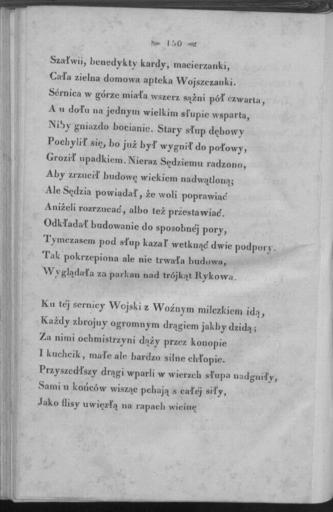 150
Szałwii, benedykty kardy, macierzanki,
Cała zielna domowa apteka Wojszczanki.
Sérnica w górze miała wszerz sążni pół czwarta,
A u dołu na jednym wielkim słupie wsparta,
Niby gniazdo bocianie. Stary słup dębowy
Pochylił się, bo już był wygnił do połowy,
Groził upadkiem. Nieraz Sędziemu radzono,
Aby zrzucił budowę wiekiem nadwątloną;
Ale Sędzia powiadał, że woli poprawiać
Aniżeli rozrzucać, albo też przestawiać.
Odkładał budowanie do sposobnéj pory,
Tymczasem pod słup kazał wetknąć dwie podpory.
Tak pokrzepiona ale nie trwała budowa,
Wyglądała za parkan nad trójkąt Rykowa.
Ku téj sernicy Wojski z Woźnym milczkiem idą,
Każdy zbrojny ogromnym drągiem jakby dzidą;
Za nimi ochmistrzyni dąży przez konopie
I kuchcik, małe ale bardzo silne chłopie.
Przyszedłszy drągi wparli w wierzch słupa nadgniły,
Sami u końców wisząc pchają z całéj siły,
Jako flisy uwięzłą na rapach wicinę